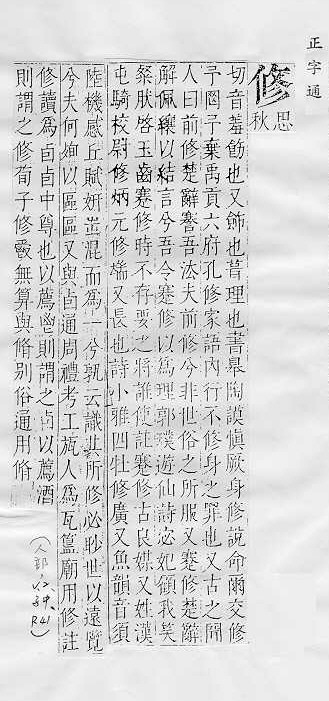 正字通
修 思秋
切音羞飭也又飾也葺理也書皋陶謨愼厥身修說命爾交修
予罔予棄禹貢六府孔修家語內行不修身之罪也又古之聞
人曰前修楚辭謇吾法夫前修兮非世俗之所服又蹇修楚辭
解佩纕以結言兮吾令蹇修以爲理郭璞遊仙詩宓妃顧我笑
粲肰啓玉齒蹇修時不存要之將誰使註蹇修古良媒又姓漢
屯騎校尉修炳元修端又長也詩小雅四牡修廣又魚韻音須
陸機感丘賦姸蚩混而爲一兮孰云識其所修必眇世以遠覽
兮夫何殉以區區又與卣通周禮考工旊人爲瓦簋廟用修註
修讀爲卣卣中尊也以薦鬯則謂之卣以薦酒
則謂之修荀子修爵無算與脩別俗通用脩
(人部 R41)